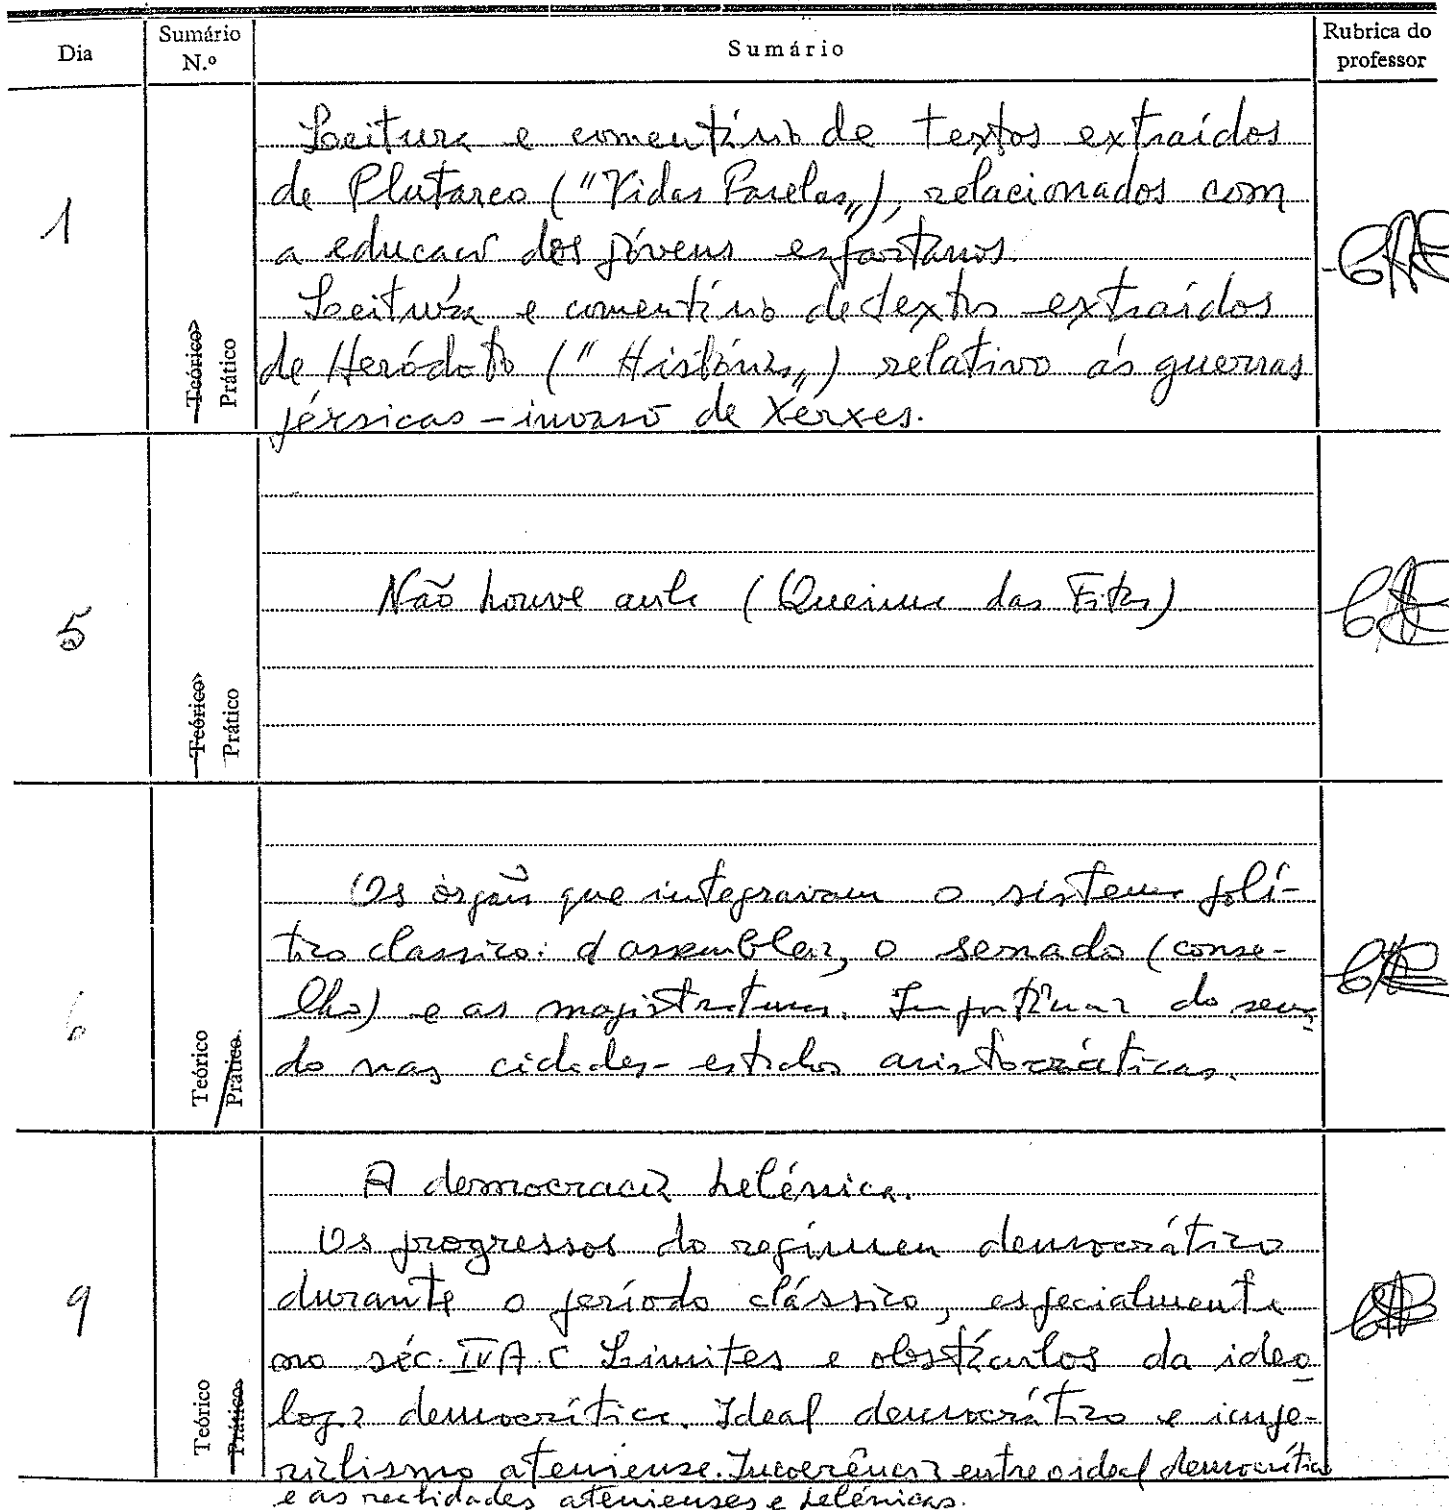 Dia
Sumário N.º
Sumário
Rubrica do professor
1
Teórico
Prático
Leitura e comentário de textos extraídos
de Plutarco ("Vidas Paralelas"), relacionados com
a educação dos jóvens espartanos.
Leitura e comentário de textos extraídos
de Heródoto ("Histórias") relativo às guerras
pérsicas - invasão de Xerxes.
5
Teórico
Prático
Não houve aula (Queima das Fitas)
6
Teórico
Prático
Os órgãos que integravam o sistema polí-
tico classico: a assembleia, o senado (conse-
lho) e as magistraturas. Importância do sena
do nas cidades-estados aristocráticas.
9
Teórico
Prático
A democracia helénica.
Os progressos do regímen democrático
durante o período clássico, especialmente
no séc. IV A. C Limites e obstáculos da ideo
logia democrática. Ideal democrático e impe-
rialismo ateniense. Incoerência entre o ideal democrático
e as realidades atenienses e helénicas.